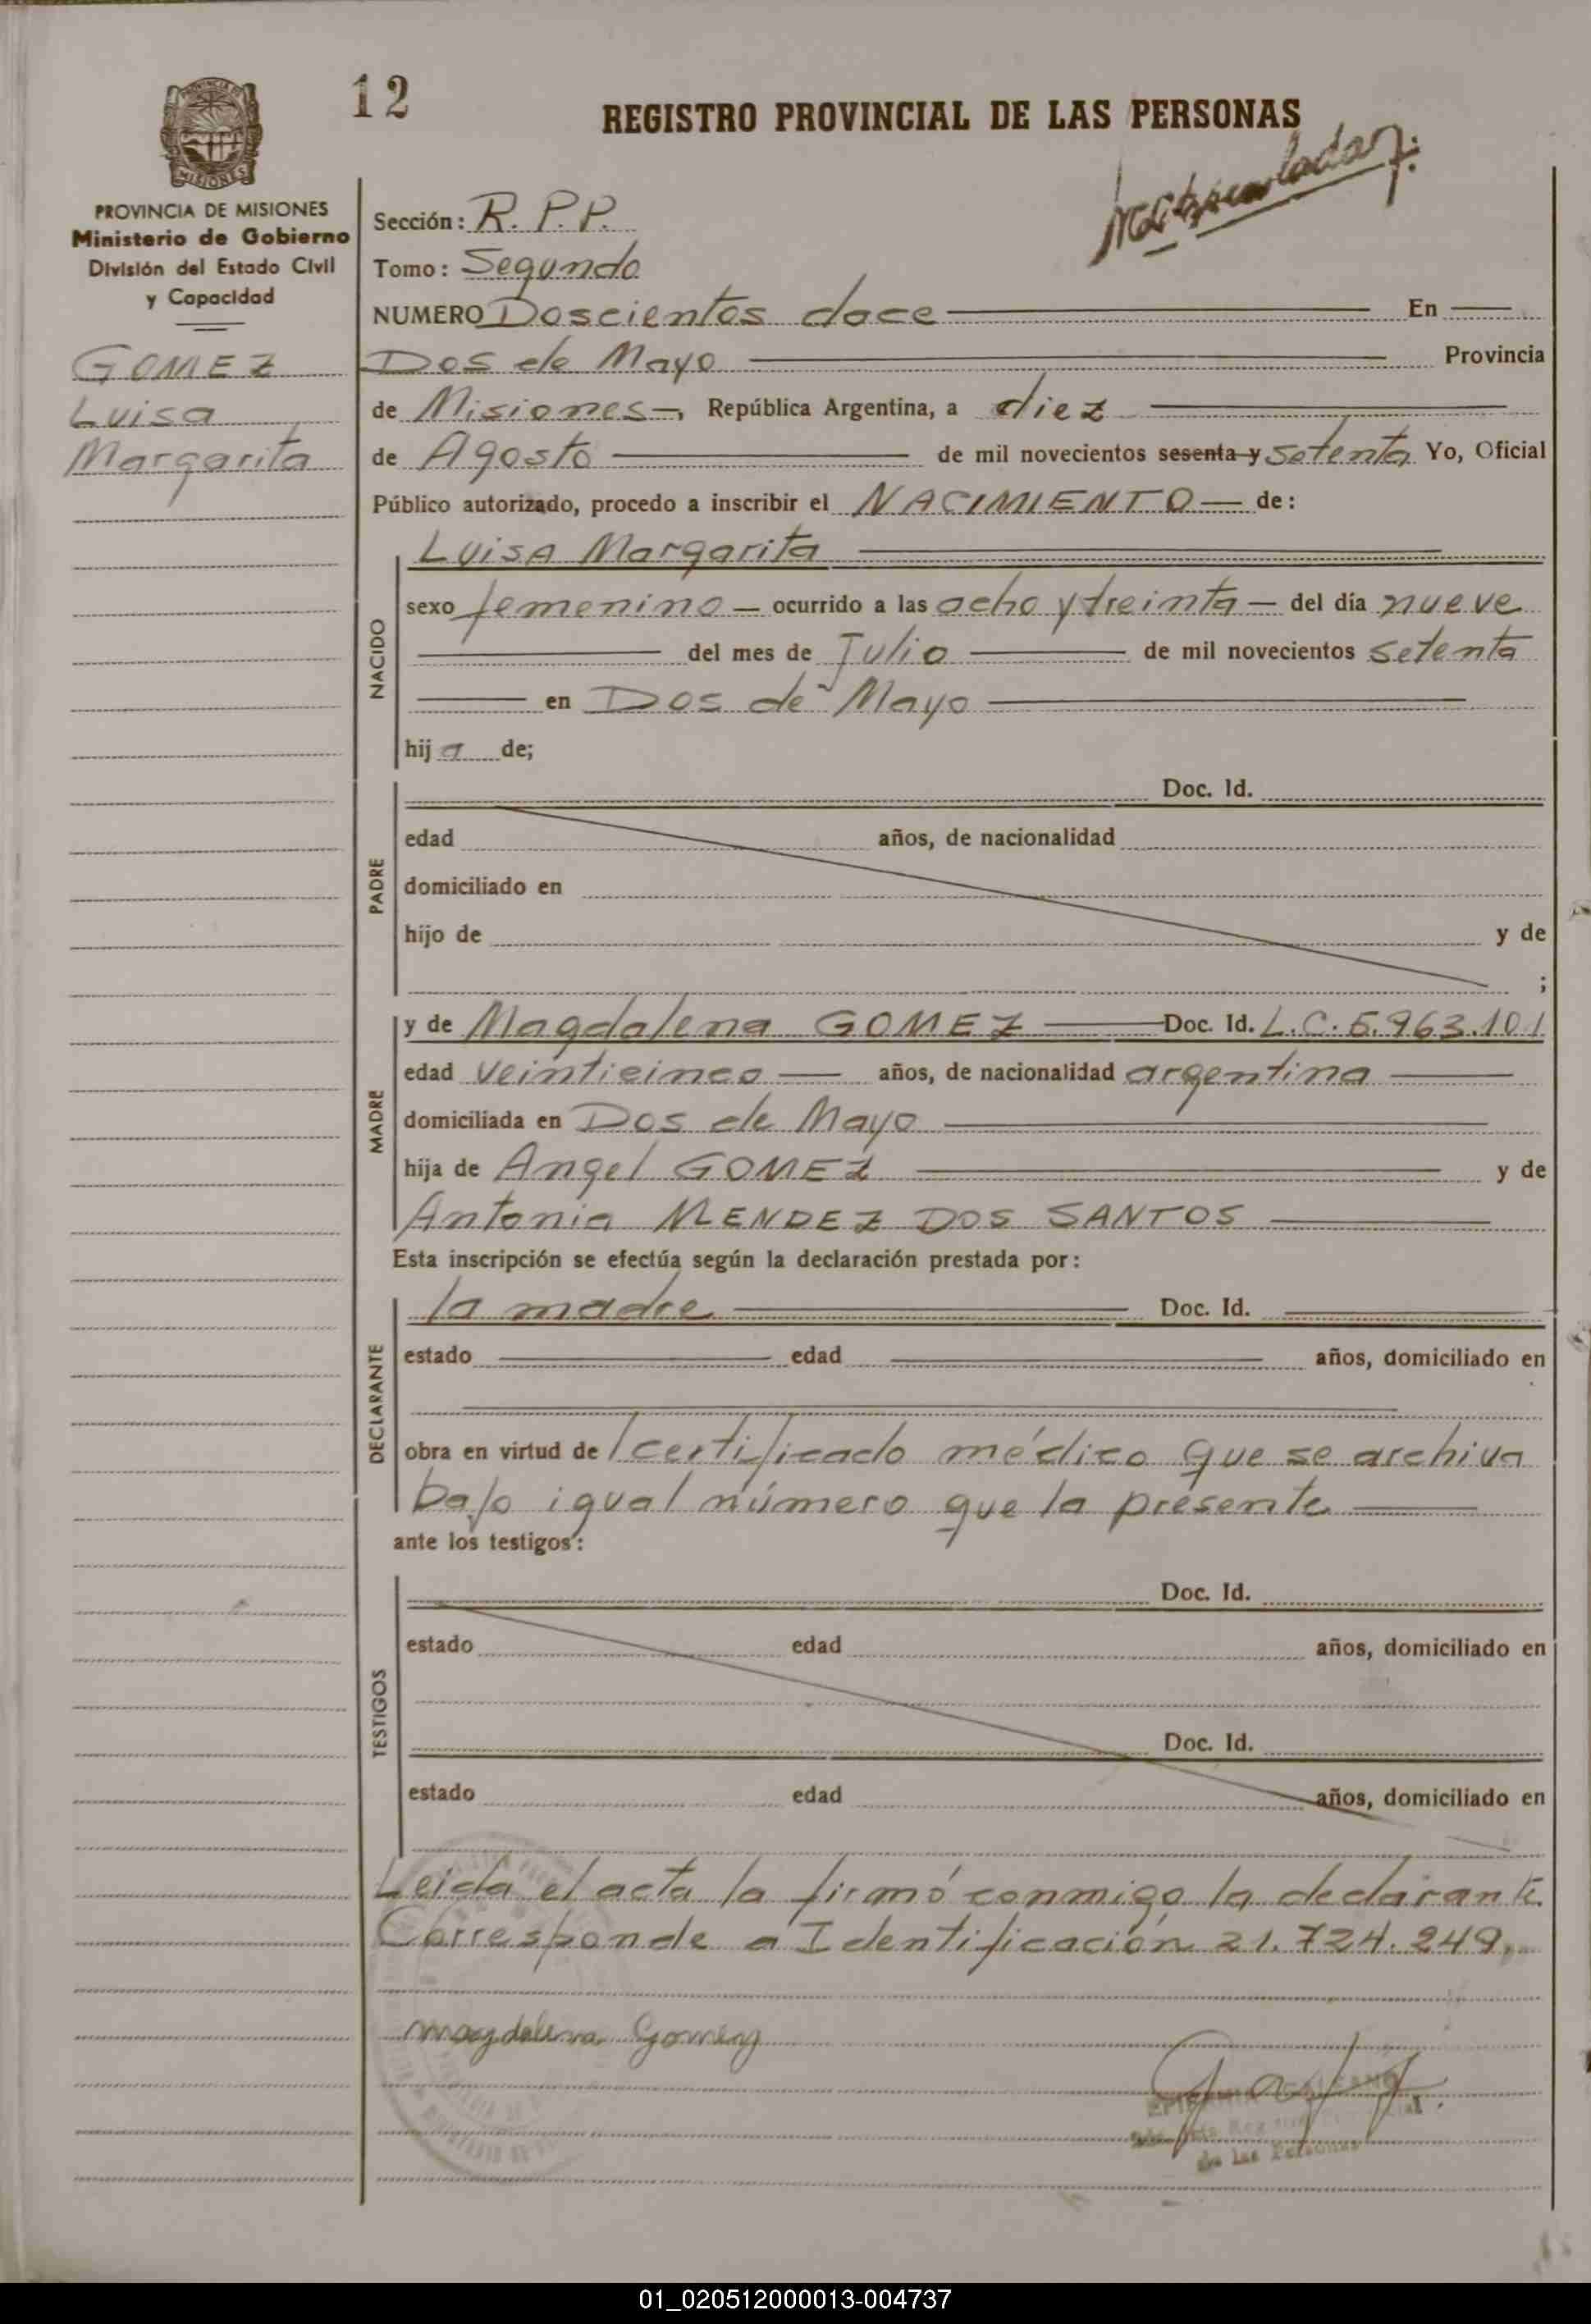 12
REGISTRO PROVINCIAL DE LAS PERSONAS
MISIONES
PROVINCIA DE MISIONES
Ministerio de Gobierno
División del Estado Civil
y Capacidad
GOMEZ
Luisa
Margarita
Sección: R.P.P.
Tomo: Segundo
NUMERO Doscientos doce En
Dos de Mayo Provincia
de Misiones, República Argentina, a diez
de Agosto de mil novecientos sesenta y setenta Yo, Oficial
Público autorizado, procedo a inscribir el NACIMIENTO de:
NACIDO
Luisa Margarita
sexo femenino ocurrido a las ocho y treinta del día nueve
del mes de Julio de mil novecientos setenta
en Dos de Mayo
hija de;
PADRE
Doc. Id.
edad años, de nacionalidad
domiciliado en
hijo de y de
;
MADRE
y de Magdalena GOMEZ Doc. Id. L.C. 5.963.101
edad veinticinco años, de nacionalidad argentina
domiciliada en Dos de Mayo
hija de Angel GOMEZ y de
Antonia MENDEZ DOS SANTOS
Esta inscripción se efectúa según la declaración prestada por:
DECLARANTE
la madre Doc. Id.
estado edad años, domiciliado en
obra en virtud de certificado médico que se archiva
bajo igual número que la presente
ante los testigos:
TESTIGOS
Doc. Id.
estado edad años, domiciliado en
Doc. Id.
estado edad años, domiciliado en
Leida el acta la firmó conmigo la declarante.
Corresponde a Identificación 21.724.249.
Magdalena Gomez
de las Personas
01_020512000013-004737